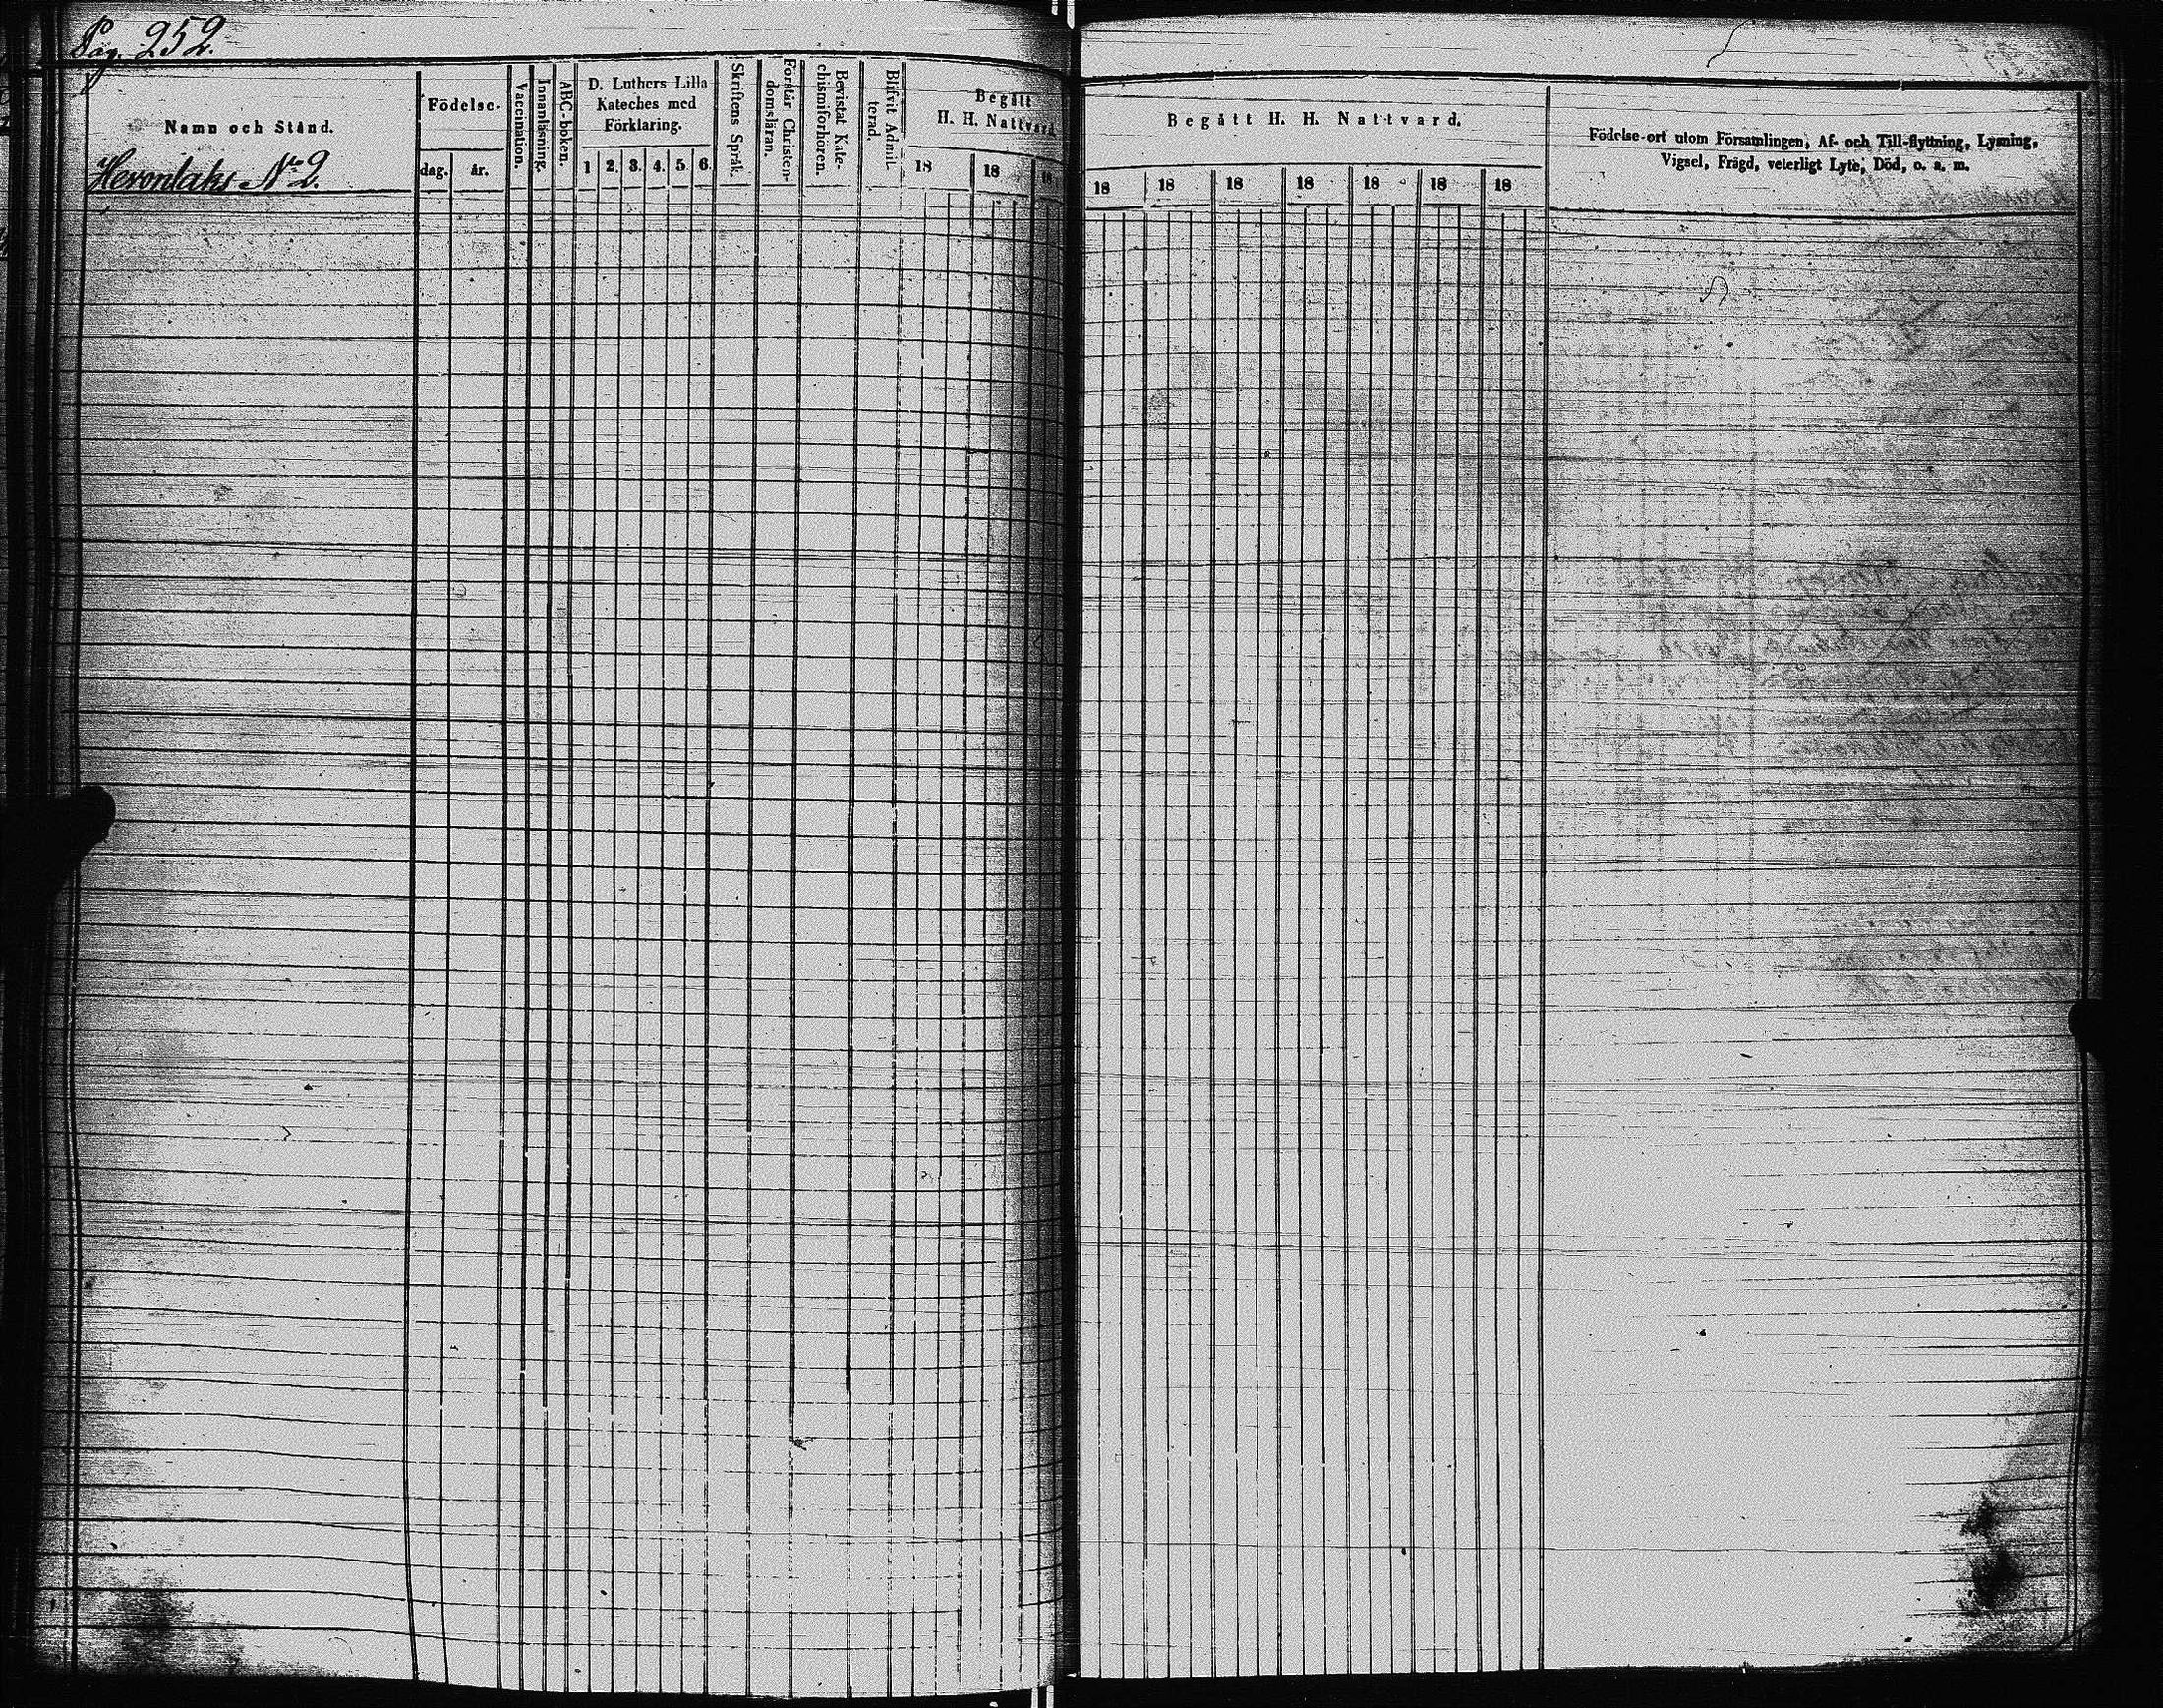 Pag. 252.
Namn och Stånd.
Heronlaks No 2.
Födelse-
dag.
år.
Vaccination.
Innanläsning.
ABC-boken.
D. Luthers Lilla
Kateches med
Förklaring.
1 2. 3. 4. 5. 6.
Skriftens Språk.
Förstår Christen-
domsläran.
Bevistat Kate-
chismiförhören.
Blifvit Admit-
terad.
Begått
H. H. Nattvard
18 18 18
Begått H. H. Nattvard.
18 18 18 18 18 18 18
Födelse-ort utom Församlingen, Af- och Till-flyttning, Lysning,
Vigsel, Frägd, veterligt Lyte, Död, o. s. m.